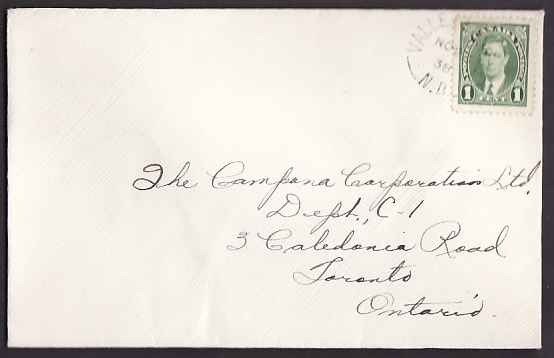 NO
38
N.B.
CANADA
1 CENT 1
The Campana Corporation Ltd,
Dept., C-1
3 Caledonia Road
Toronto
Ontario.